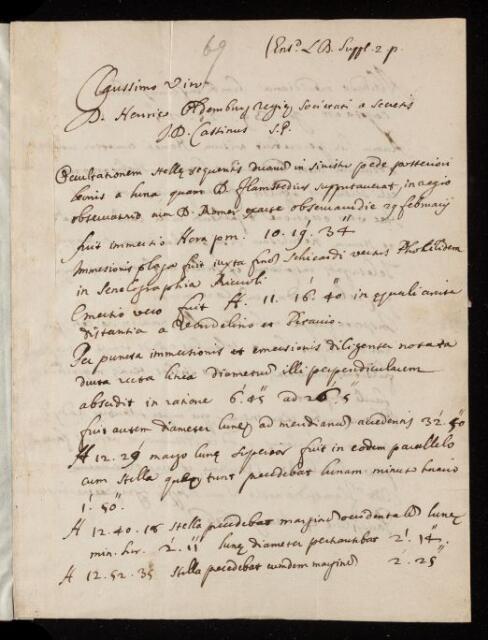 69
(Ent.d L.B. Suppl. 2 p.
Clarissimo Viro
D. Henrico Oldemburg Regiæ Societati a Secretis
JD. Cassinus S.P.
Occultationem stellæ sequentis duarum in sinistro pede posteriori
leonis a luna quam D. Flamstedius supputaverat, in regio
observatorio cum D. Romer exacte observavi die 29 februarij
fuit immersio Hora p.m. 10. 19. 34"
Immersionis plaga fuit iuxta finem Schicardi versus Phokilidem
in Selenographia Riccioli
Emersio vero fuit H. 11. 16'. 40" in æquali circiter
distantia a Vendelino et Petavio.
Per puncta immersionis et emersionis diligenter notata
ducta recta linea diametrum illi perpendicularem
abscidit in ratione 6'. 45" ad 26'. 5"
fuit autem diameter lunæ ad meridianum accedentis 32'. 50"
H 12. 29' margo lunæ superior fuit in eodem parallelo
cum stella quæ tunc præcedebat lunam minuto horario
1'. 50".
H 12. 40. 18 stella præcedebat marginem occidentalem lunæ
min. hor. 2'. 11" lunæ diameter pertransibat 2'. 14".
H 12. 52. 35 stella præcedebat eundem marginem 2'. 25"